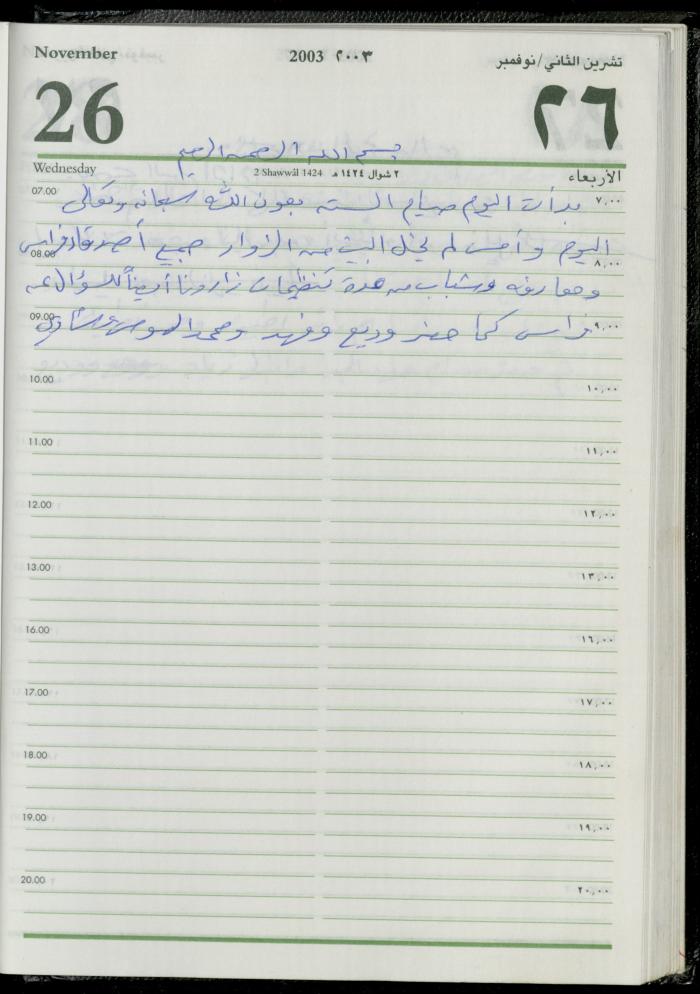 November 2003 ٢٠٠٣ تشرين الثاني/نوفمبر
26 ٢٦
بسم الله الرحمن الرحيم
Wednesday 2 Shawwāl 1424 ٢ شوال ١٤٢٤ هـ الأربعاء
07.00 ٧,٠٠
بدأت اليوم صيام الستة بعون الله سبحانه وتعالى
اليوم وأمس لم يخل البيت من الزوار جميع أصدقاء فراس
08.00 ٨,٠٠
ومعارفه وشباب من عدة تنظيمات زارونا أيضاً للسؤال عن
09.00 ٩,٠٠
فراس كما حضر وديع وفهد ومحمد
10.00 ١٠,٠٠
11.00 ١١,٠٠
12.00 ١٢,٠٠
13.00 ١٣,٠٠
16.00 ١٦,٠٠
17.00 ١٧,٠٠
18.00 ١٨,٠٠
19.00 ١٩,٠٠
20.00 ٢٠,٠٠